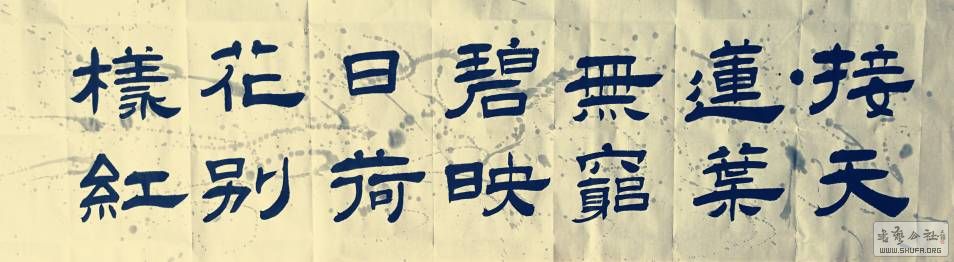 接天
蓮葉
無窮
碧映
日荷
花别
樣紅
书艺公社
WWW.SHUFA.ORG